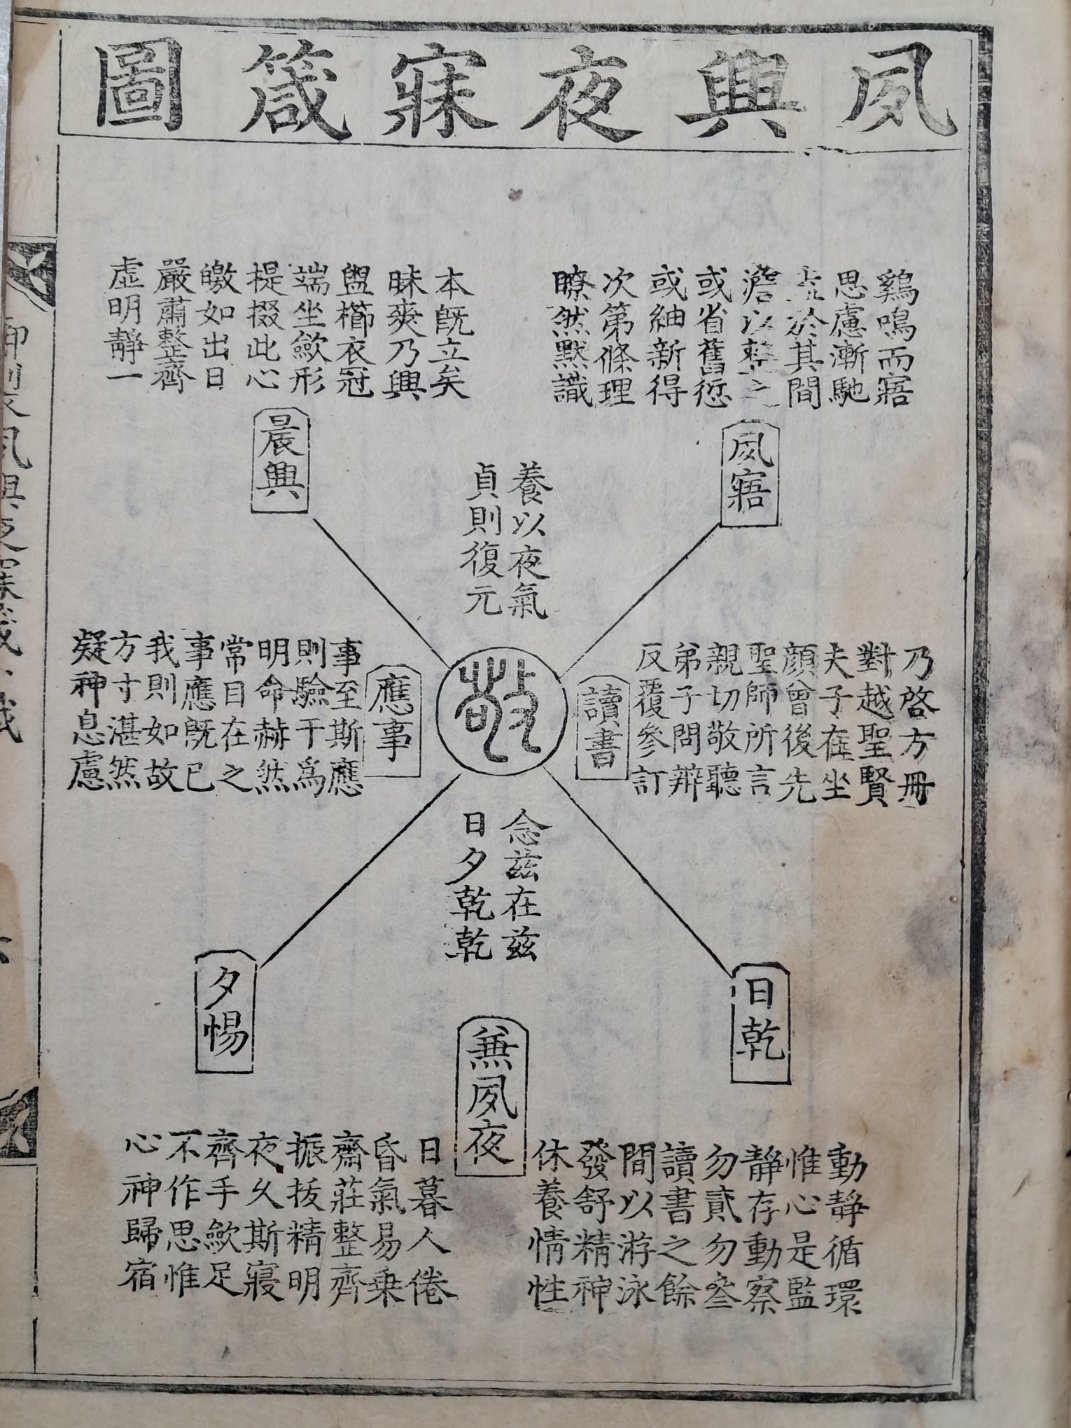 夙興夜寐箴圖
鷄鳴而寤
思慮漸馳
盍於其間
澹以整之
或省舊愆
或紬新得
次第條理
瞭然默識
夙寤
本旣立矣
昧爽乃興
盥櫛衣冠
端坐歛形
提掇此心
皦如出日
嚴肅整齊
虛明靜一
晨興
養以夜氣
貞則復元
敬
乃啓方冊
對越聖賢
夫子在坐
顔曾後先
聖師所言
親切敬聽
弟子問辨
反覆參訂
讀書
應事
事至斯應
則驗于爲
明命赫然
常目在之
事應旣已
我則如故
方寸湛然
凝神息慮
念玆在玆
日夕乾乾
日乾
夕惕
兼夙夜
動靜循環
惟心是監
靜存動察
勿貳勿參
讀書之餘
間以游泳
發舒精神
休養情性
日暮人倦
昏氣易乗
齋莊整齊
振拔精明
夜久斯寢
齊手歛足
不作思惟
心神歸宿